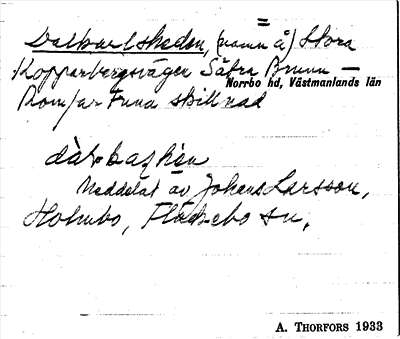 Dalkarlsheden, (namn å) Stora
Kopparbergsvägen Sätra Brunn —
Norrbo hd, Västmanlands län
Romfartuna skillnad
Meddelat av Johans Larsson,
Holmbo, Fläckebo sn.
A. THORFORS 1933